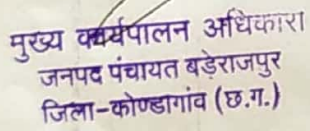 मुख्य कार्यपालन अधिकारी
जनपद पंचायत बड़ेराजपुर
जिला-कोण्डागांव (छ.ग.)